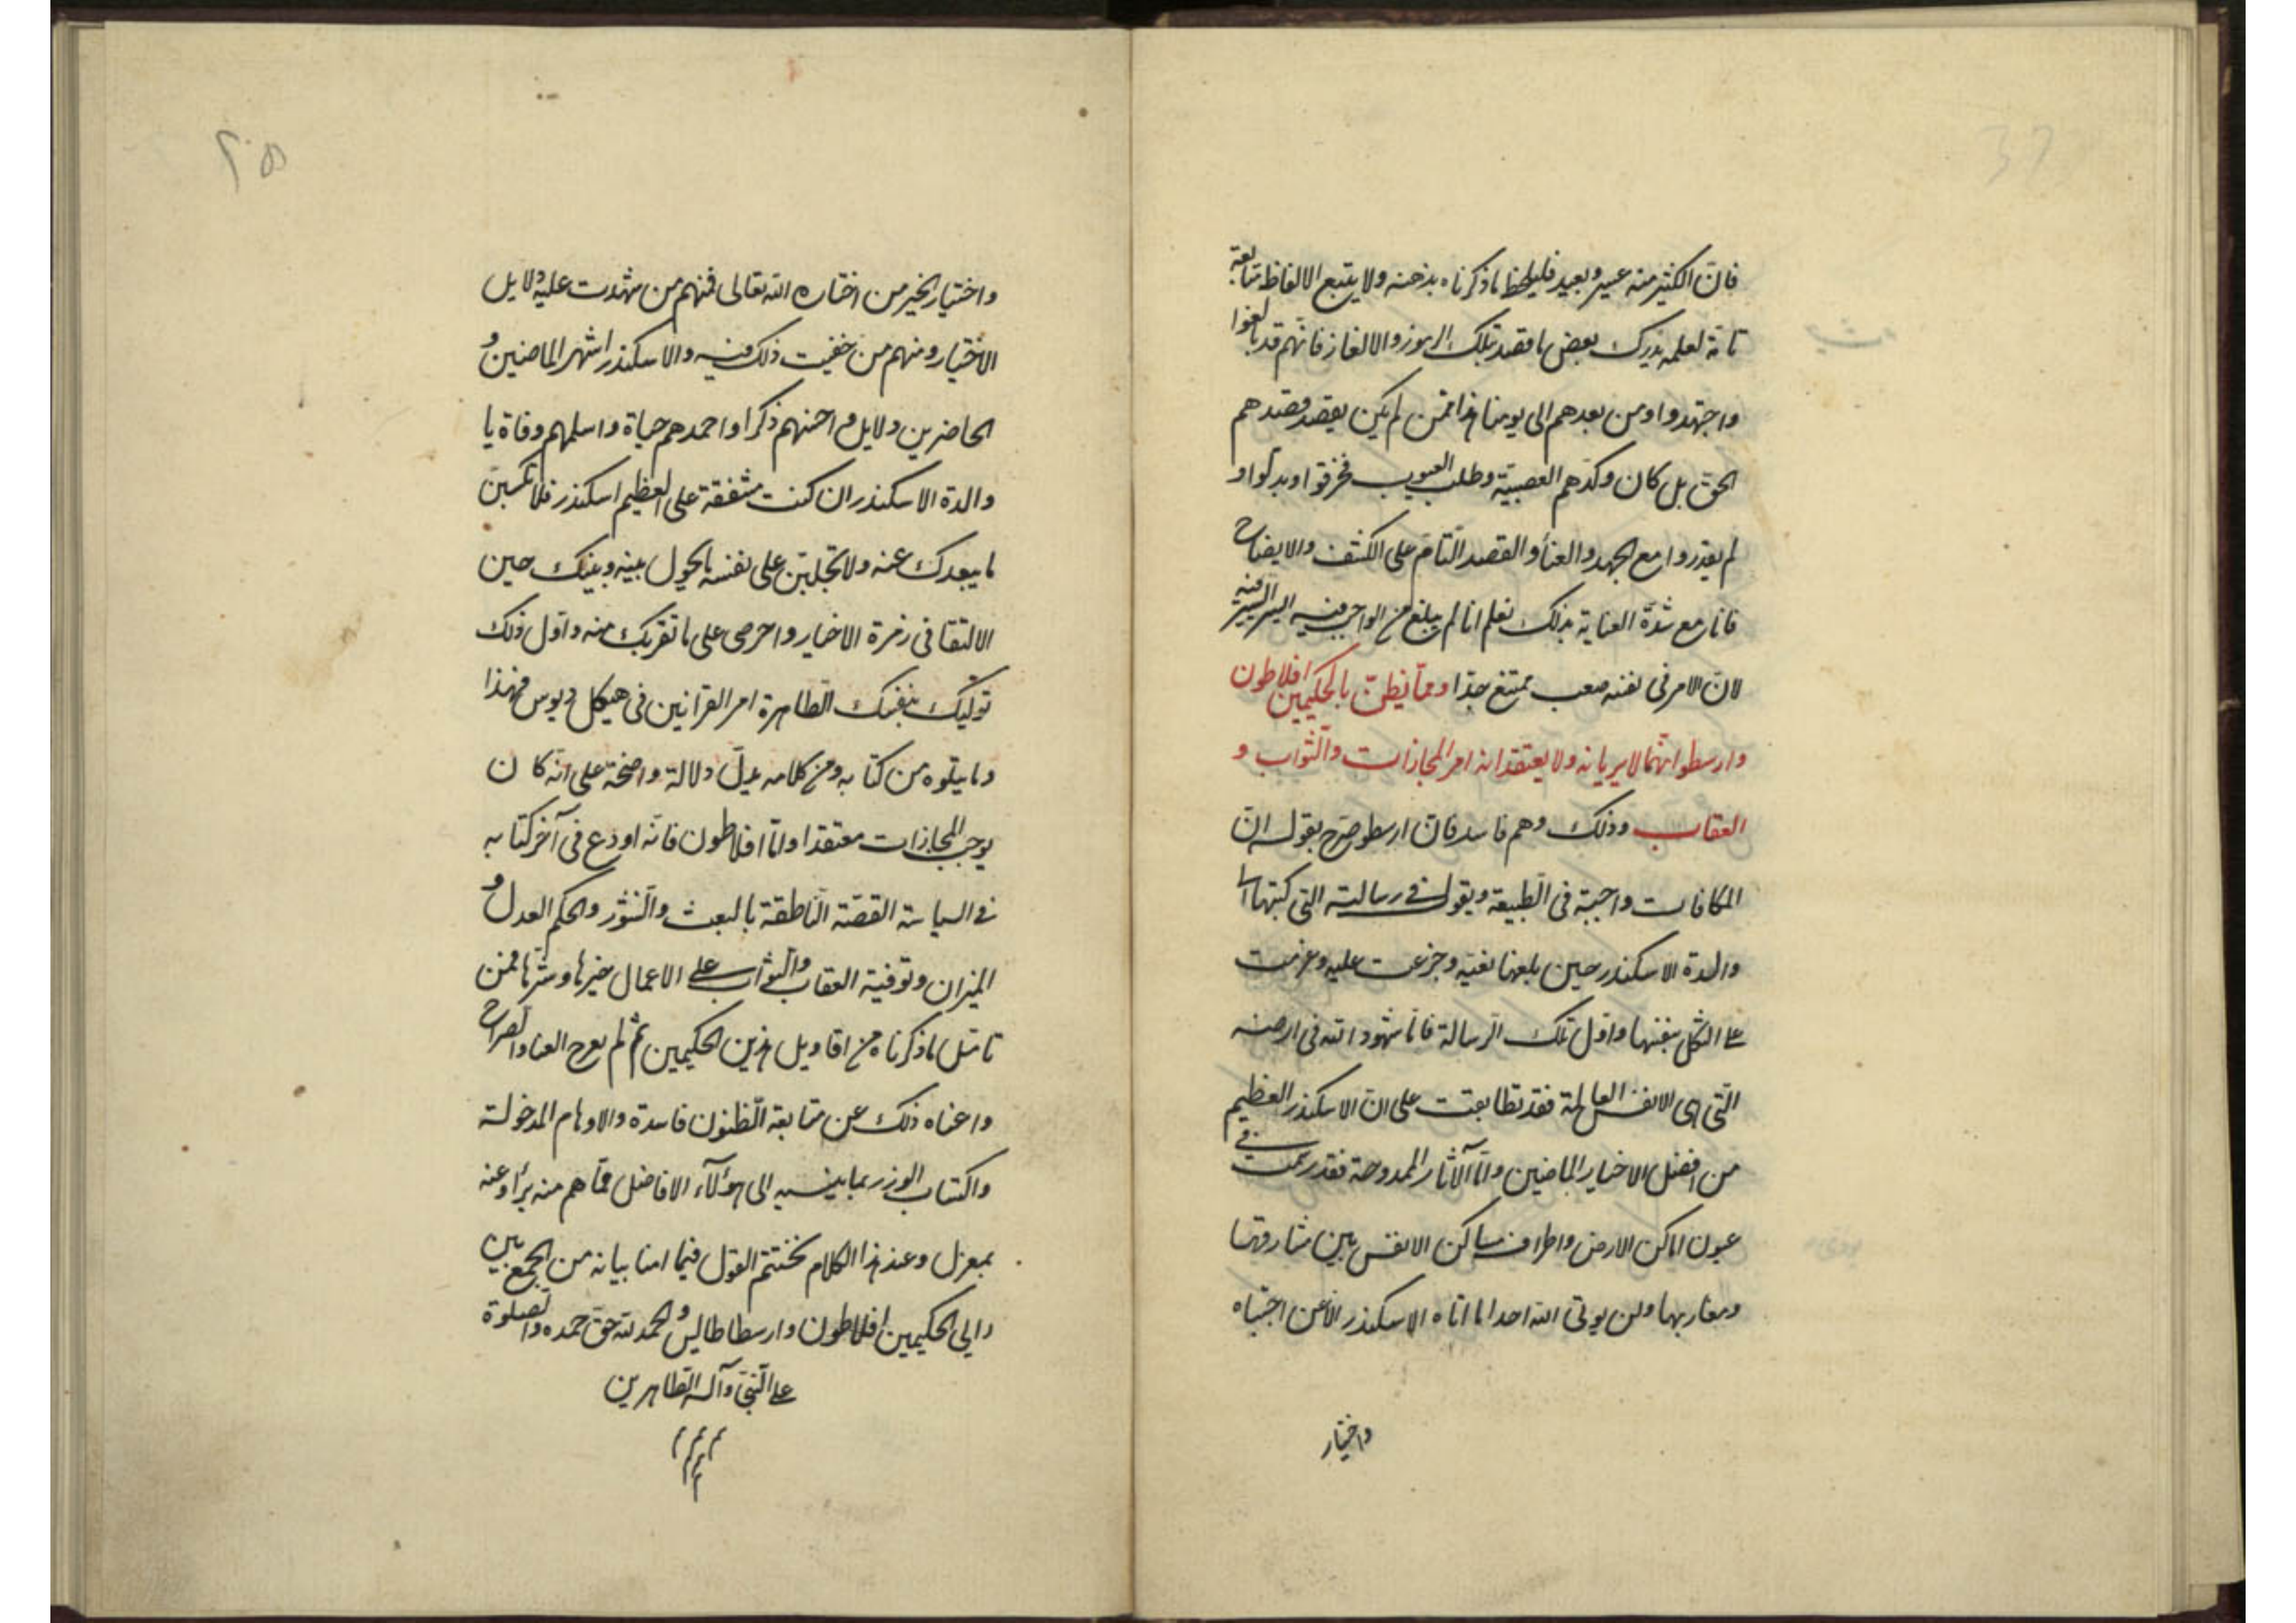 فان الكثير منه عسير وبعيد فليلحظ ما ذكرناه بذهنه ولا يتبع الالفاظ متابعة
تامة لعله يدرك بعض ما قصد بتلك الرموز والالغاز فانهم قد بالغوا
واجتهدوا ومن بعدهم الى يومنا هذا ممن لم يكن يقصد قصدهم
الحق بل كان وكدهم العصبية وطلب العيوب فحرفوا وبدلوا و
لم يقدروا مع الجهد والعناء والقصد التام على الكشف والايضاح
فانا مع شدة العناية بذلك نعلم انا لم نبلغ من الواجب فيه الا يسير اليسير
لان الامر في نفسه صعب ممتنع جدا ومما يظن بالحكيمين افلاطون
وارسطو انهما لا يريانه ولا يعتقدانه امر المجازات والثواب و
العقاب وذلك وهم فاسد فان ارسطو صرح بقوله ان
المكافات واجبة في الطبيعة ويقول في رسالته التي كتبها الى
والدة الاسكندر حين بلغها نعيه وجزعت عليه وعزمت
على الثكل بنفسها واول تلك الرسالة فاما شهود الله في ارضه
التي هي الانفس العالمة فقد تطابقت على ان الاسكندر العظيم
من افضل الاخيار الماضين واما الآثار الممدوحة فقد رسمت في
عيون اماكن الارض واطراف مساكن الانفس بين مشارقها
ومغاربها ولن يوتى الله احدا ما اتاه الاسكندر الا عن اجتباه
واختيار
٢٠٥
واختيار الخير من اختاره الله تعالى فمنهم من شهدت عليه دلايل
الاختيار ومنهم من خفيت ذلك فيه والاسكندر اشهر الماضين و
الحاضرين دلايل واحسنهم ذكرا واحمدهم حياة واسلمهم وفاة يا
والدة الاسكندر ان كنت مشفقة على العظيم اسكندر فلا تكسبن
ما يبعدك عنه ولا تجلبن على نفسه ما يحول بينه وبينك حين
الالتقا في زمرة الاخيار واحرصى على ما تقربك منه واول ذلك
توليك بنفسك الطاهرة امر القرانين في هيكل ديوس فهذا
وما يتلوه من كتابه ومن كلامه يدل دلالة واضحة على انه كان
يوجب المجازات معتقدا واما افلاطون فانه اودع في آخر كتابه
في السياسة القصة الناطقة بالبعث والنشور والحكم العدل و
الميزان وتوفية العقاب والثواب على الاعمال خيرها وشرها فمن
تامل ما ذكرناه من اقاويل هذين الحكيمين ثم لم يعرج العناد الصراح
واغناه ذلك عن متابعة الظنون فاسدة والاوهام المدخولة
واكتساب الوزر بما ينسبه الى هؤلآء الافاضل مما هم منه براء وعنه
بمعزل وعند هذا الكلام نختتم القول فيما امنا بيانه من الجمع بين
رايي الحكيمين افلاطون وارسطاطاليس والحمد لله حق حمده والصلوة
على النبي وآله الطاهرين